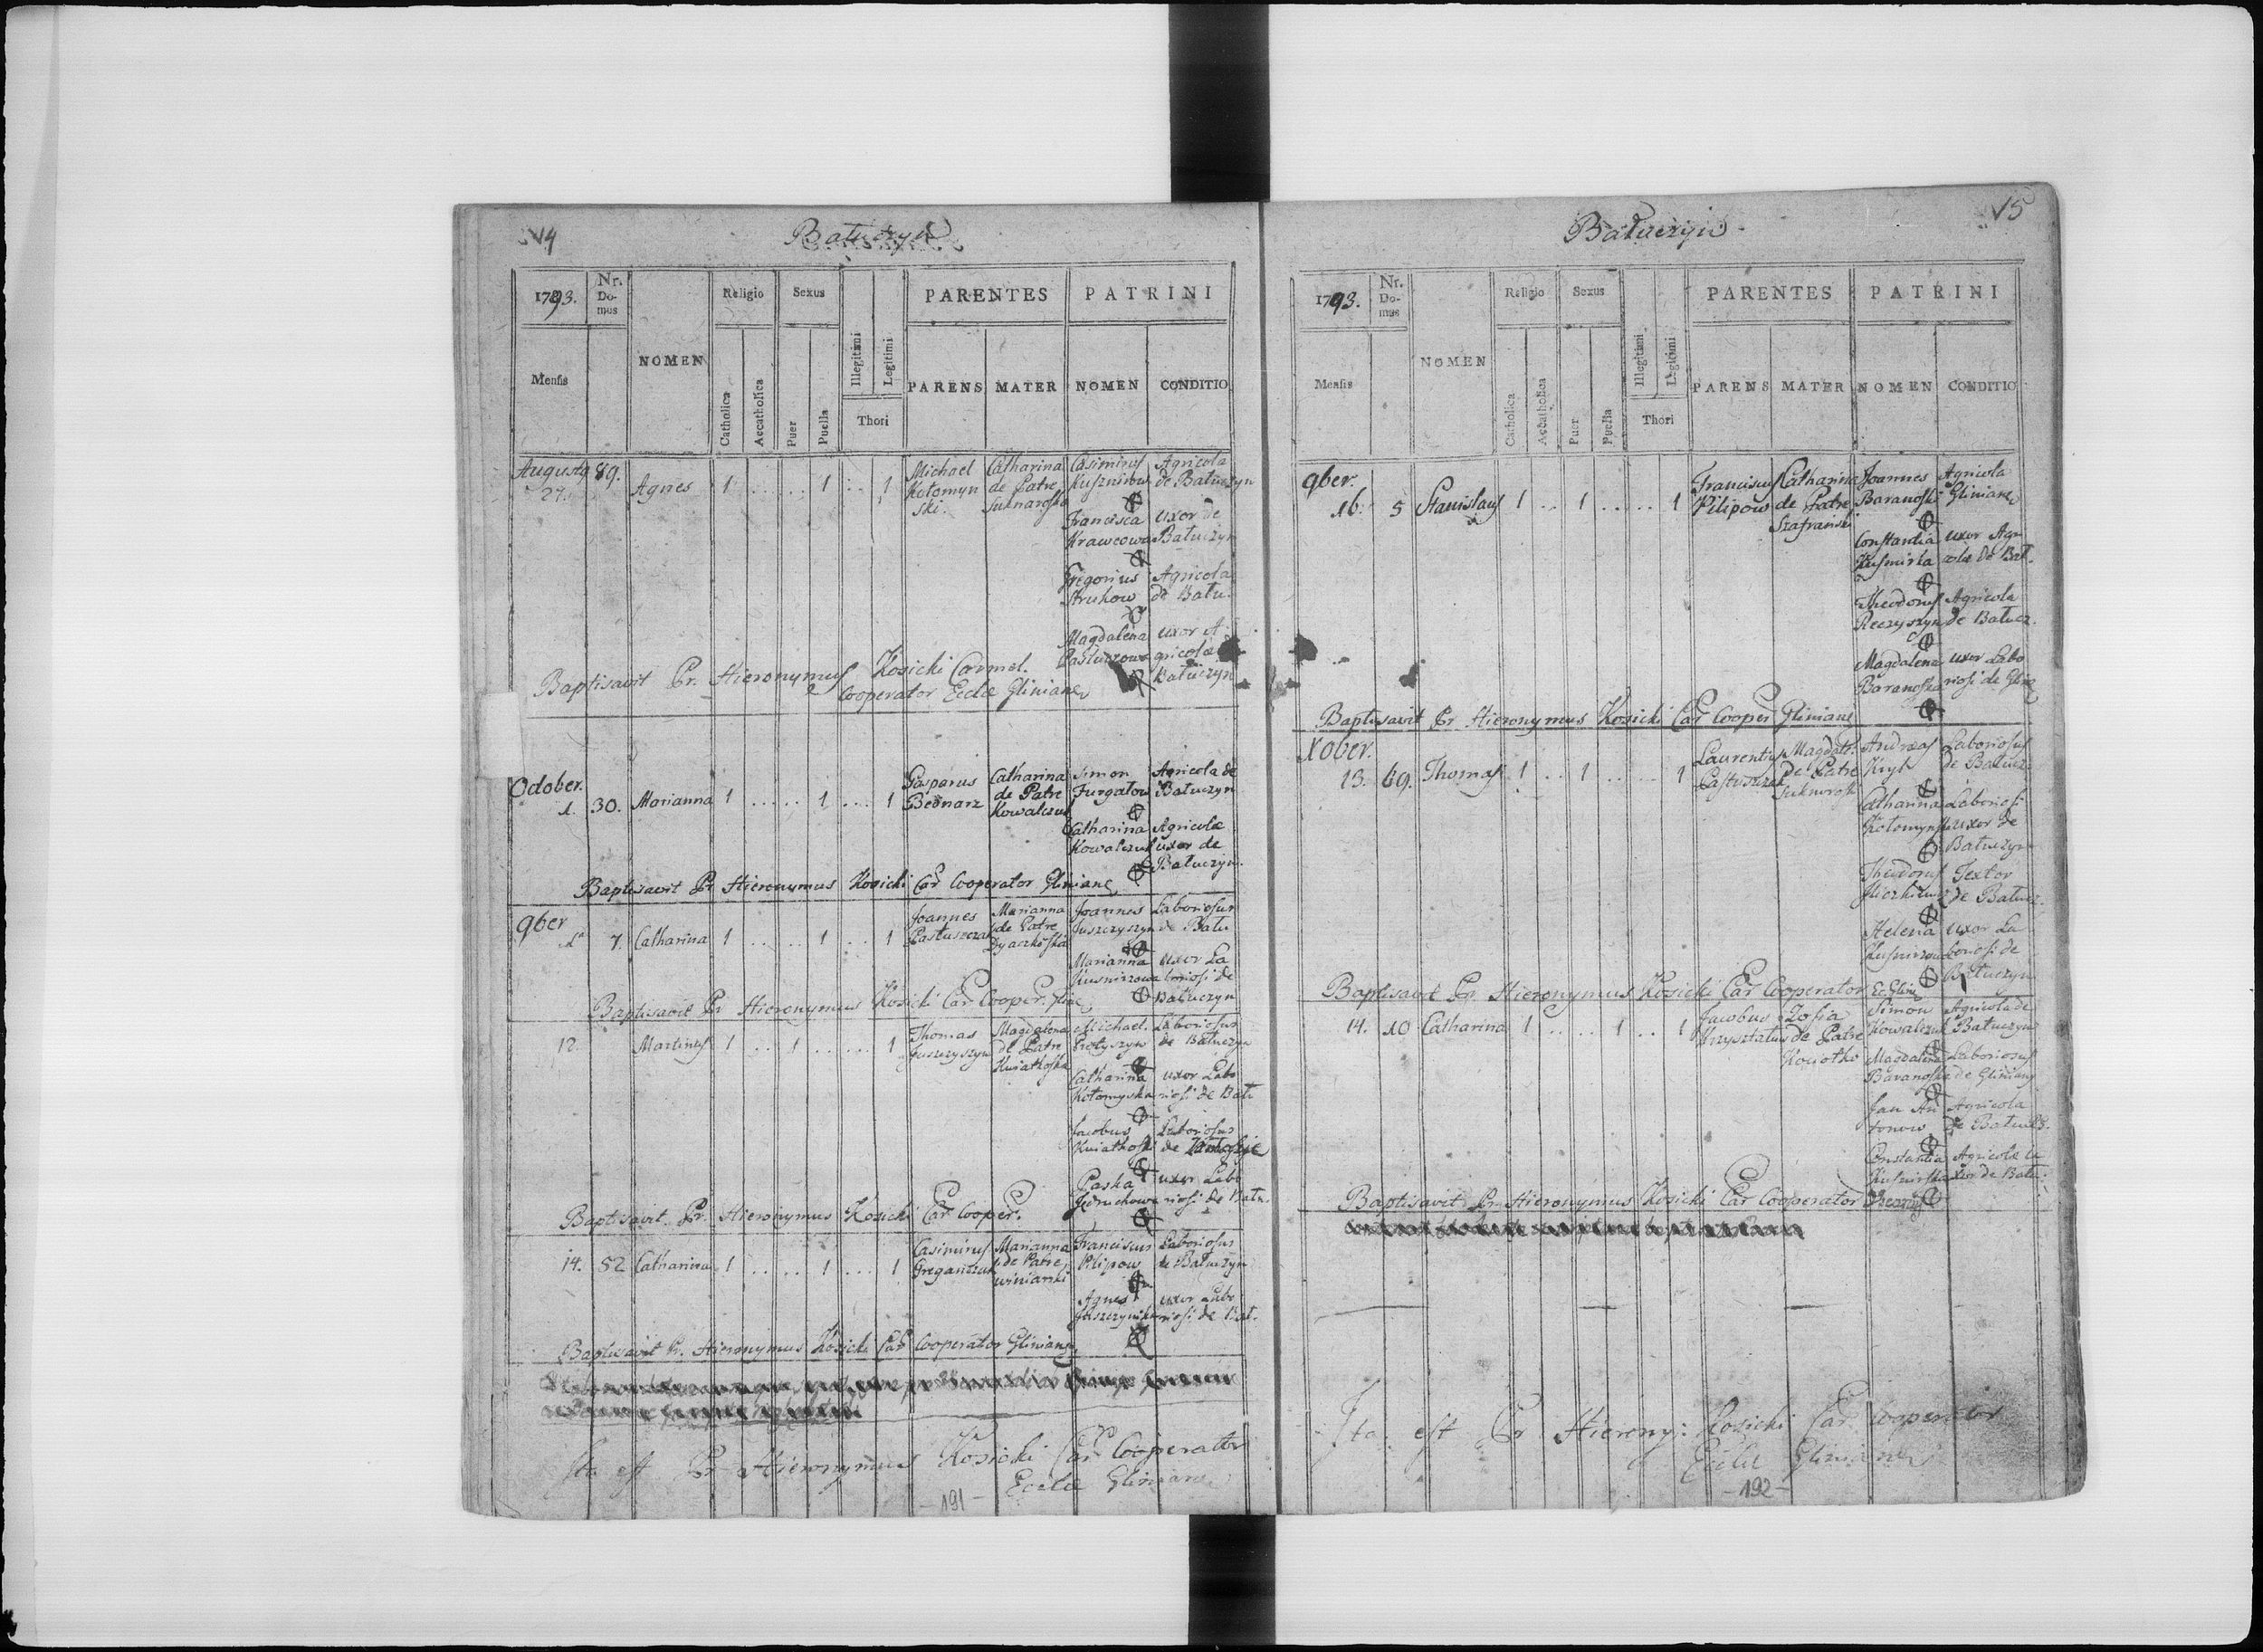 14
Batuczyn
1793.
Nr. Do-mus
NOMEN
Religio
Sexus
PARENTES
PATRINI
Mensis
Catholica
Accatholica
Puer
Puella
Illegitimi
Legitimi
Thori
PARENS
MATER
NOMEN
CONDITIO
August 89. Agnes 1 ..... 1 .. 1 Michael Catharina Casimirus Agricola
27. Kołomyn de Patre Kusznirow de Batuczyn
ski. Suknarośka
Francisca uxor de
Krawcowa Batuczyn
Gregorius Agricola
Struhow de Batu.
Magdalena uxor A
Pastuszowa gricolæ
Batuczyn
Baptisavit Pr. Hieronymus Kosicki Carmel.
Cooperator Eccle Gliniane
October.
1. 30. Marianna 1 ..... 1 ... 1 Gasparus Catharina Simon Agricola de
Bednarz de Patre Furgałow Batuczyn
Kowalczuk
Catharina Agricolæ
Kowalczuk uxor de
Batuczyn.
Baptisavit Pr Hieronymus Kosicki Car Cooperator Gliniane
9ber
7. Catharina 1 .... 1 .. 1 Joannes Marianna Joannes Laboriosus
Pastuszczak de Patre Juszczyszyn de Batu
Dyaczkośka
Marianna uxor La
Kusnirzowa boriosi de
Batuczyn
Baptisavit Pr Hieronymus Kosicki Car Cooper. Gline
12. Martinus 1 .. 1 ..... 1 Thomas Magdalena Michael. Laboriosus
Juszczyszyn de Patre de Batuczyn
Kwiatkośka
Catharina uxor Labo
Kołomyska riosi de Batu
Jacobus Laboriosus
Kwiatkośki de
Paska uxor Labo
riosi de Batu.
Baptisavit Pr. Hieronymus Kosicki Car Cooper.
14. 52 Catharina 1 .... 1 ... 1 Casimirus Marianna Franciscus Laboriosus
Greganczuk de Patre Pilipow de Batuczyn
winianski
Agnes uxor Labo
riosi de Bat.
Baptisavit Pr. Hieronymus Kosicki Car Cooperator Gliniane
Ita est Pr Hieronymus Kosicki Car Cooperator
Eccle Gliniane
-191-
15
Batuczyn
1793.
Nr. Do-mus
NOMEN
Religio
Sexus
PARENTES
PATRINI
Mensis
Catholica
Accatholica
Puer
Puella
Illegitimi
Legitimi
Thori
PARENS
MATER
NOMEN
CONDITIO
9ber.
16. 5 Stanislaus 1 .. 1 ..... 1 Franciscus Catharina Joannes Agricola
Pilipow de Patre Baranośki Gliniane
Szafranski
Constantia uxor Agri
Kusnirka colæ de Bat.
Theodorus Agricola
Reczyszyn de Batucz.
Magdalena uxor Labo
Baranośka riosi de Gline
Baptisavit Pr Hieronymus Kosicki Car Cooper Gliniane
Xober.
13. 69. Thomas 1 .. 1 ..... 1 Laurentius Magdal. Andreas Laboriosus
Pastuszczak de Patre Kryk de Batucz
Catharina Laboriosi
uxor de
Batuczyn
Theodorus Textor
de Batucz.
Helena uxor La
boriosi de
Batuczyn
Baptisavit Pr. Hieronymus Kosicki Car Cooperator Ec Gline
14. 10 Catharina 1 .... 1 .. 1 Jacobus Zofia Simon Agricola de
Krysztalus de Patre Kowalczuk Batuczyn
Magdalena Laboriosus
Baranośka de Gliniany
Jan An Agricola
tonow de Batucz.
Constantia Agricolæ u
Kusnirka xor de Batu.
Baptisavit Pr Hieronymus Kosicki Car Cooperator
Ita est Pr Hierony: Kosicki Car Cooperator
Eccle Gliniane
-192-